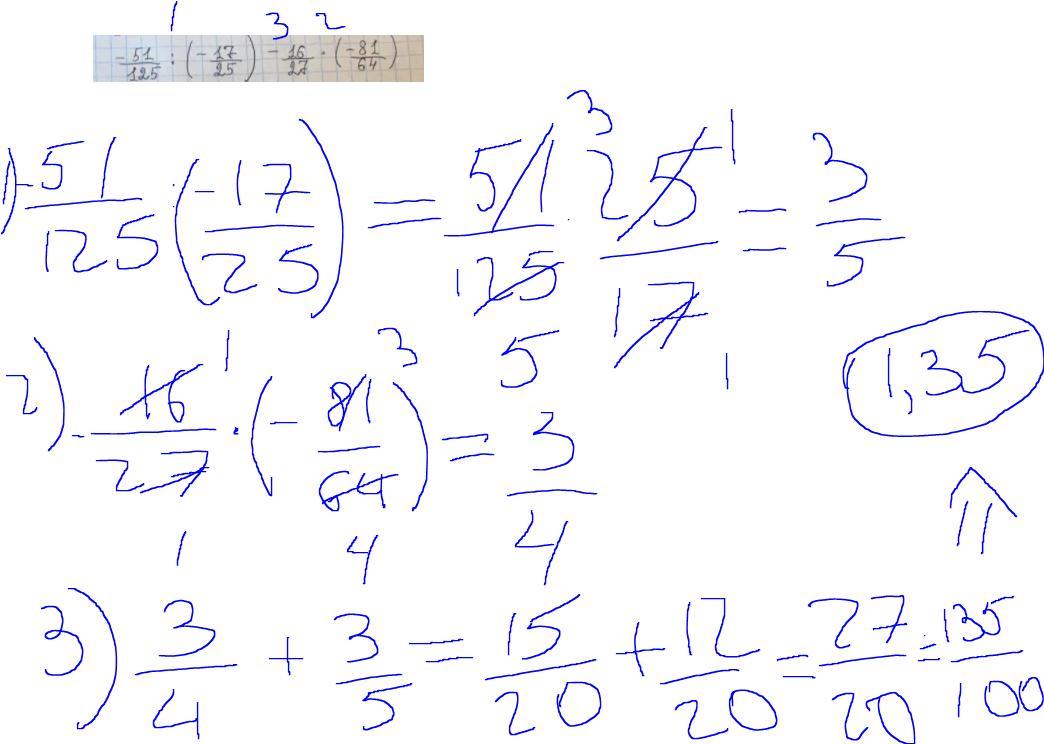 1 3 2
-51/125 : (-17/25) - 16/27 · (-81/64)
1) -51/125 : (-17/25) = 51/125 · 25/17 = 3/5
3 1
5 1
2) -16/27 · (-81/64) = 3/4
1 3
1 4
1,35
⇑
3) 3/4 + 3/5 = 15/20 + 12/20 = 27/20 = 135/100